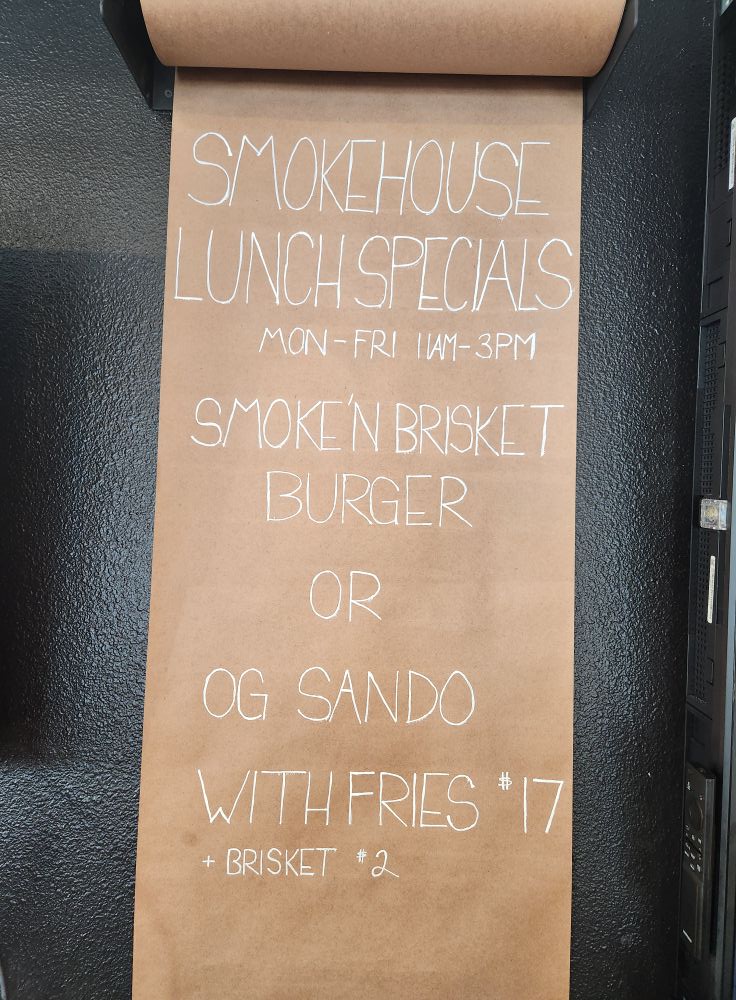 SMOKEHOUSE
LUNCH SPECIALS
MON-FRI 11AM-3PM
SMOKE'N BRISKET
BURGER
OR
OG SANDO
WITH FRIES $17
+ BRISKET $2